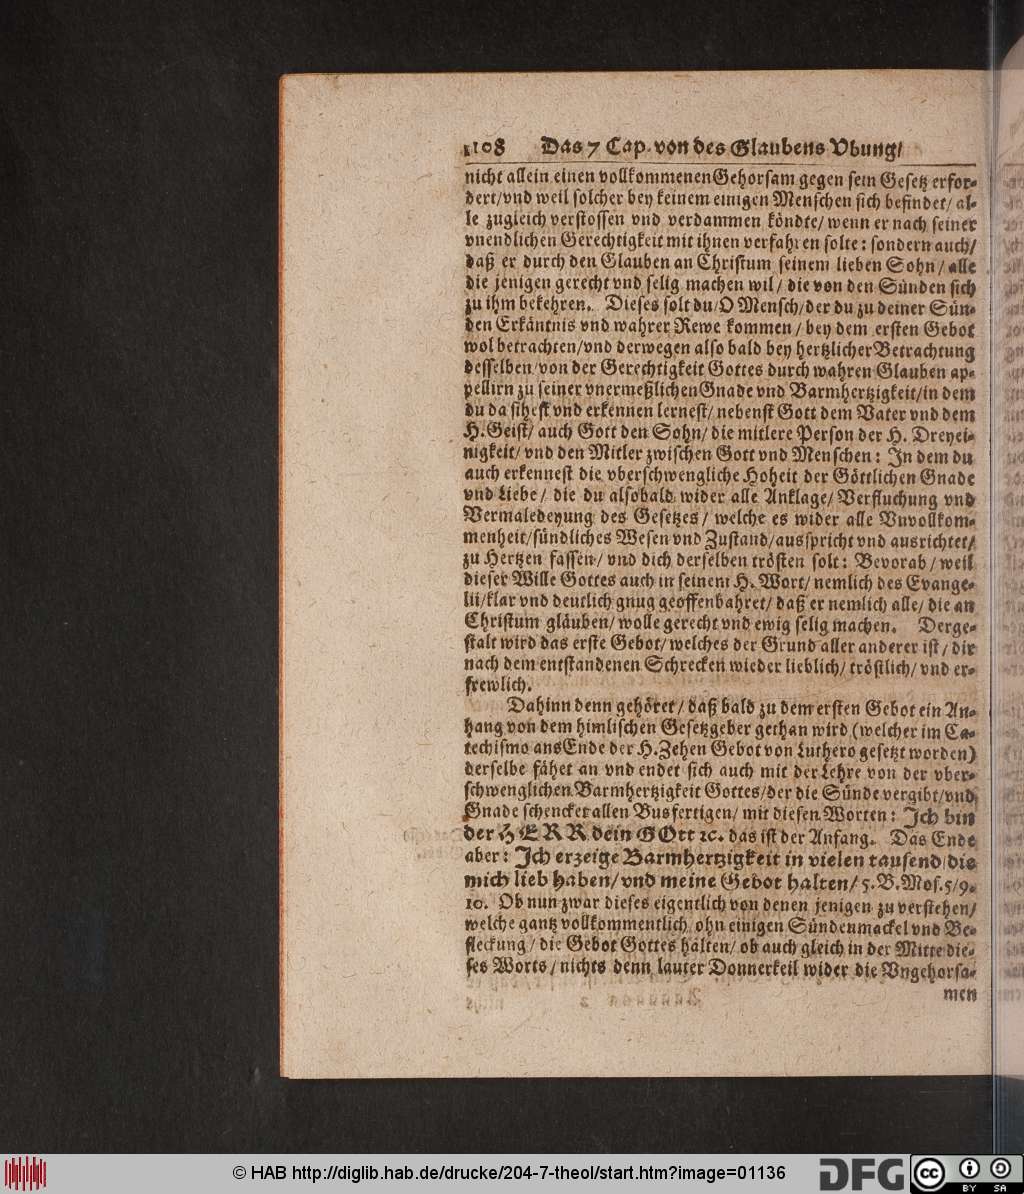 1108 Das 7 Cap. von des Glaubens Vbung/
nicht allein einen vollkommenen Gehorsam gegen sein Gesetz erfor-
dert/vnd weil solcher bey keinem einigen Menschen sich befindet/ al-
le zugleich verstossen vnd verdammen köndte/ wenn er nach seiner
vnendlichen Gerechtigkeit mit ihnen verfahren solte: sondern auch/
daß er durch den Glauben an Christum seinem lieben Sohn/ alle
die jenigen gerecht vnd selig machen wil/ die von den Sünden sich
zu ihm bekehren. Dieses solt du/O Mensch/der du zu deiner Sün-
den Erkäntnis vnd wahrer Rewe kommen/ bey dem ersten Gebot
wol betrachten/vnd derwegen also bald bey hertzlicher Betrachtung
desselben/von der Gerechtigkeit Gottes durch wahren Glauben ap-
pellirn zu seiner vnermeßlichen Gnade vnd Barmhertzigkeit/in dem
du da sihest vnd erkennen lernest/ nebenst Gott dem Vater vnd dem
H. Geist/ auch Gott den Sohn/ die mitlere Person der H. Dreyei-
nigkeit/ vnd den Mitler zwischen Gott vnd Menschen: In dem du
auch erkennest die vberschwengliche Hoheit der Göttlichen Gnade
vnd Liebe/ die du alsobald wider alle Anklage/ Verfluchung vnd
Vermaledeyung des Gesetzes/ welche es wider alle Vnvollkom-
menheit/sündliches Wesen vnd Zustand/ausspricht vnd ausrichtet/
zu Hertzen fassen/ vnd dich derselben trösten solt: Bevorab/ weil
dieser Wille Gottes auch in seinem H. Wort/ nemlich des Evange-
lii/klar vnd deutlich gnug geoffenbahret/ daß er nemlich alle/ die an
Christum gläuben/ wolle gerecht vnd ewig selig machen. Derge-
stalt wird das erste Gebot/ welches der Grund aller anderer ist/ dir
nach dem entstandenen Schrecken wieder lieblich/ tröstlich/ vnd er-
frewlich.
Dahinn denn gehöret/ daß bald zu dem ersten Gebot ein An-
hang von dem himlischen Gesetzgeber gethan wird (welcher im Ca-
techismo ans Ende der H. Zehen Gebot von Luthero gesetzt worden)
derselbe fähet an vnd endet sich auch mit der Lehre von der vber-
schwenglichen Barmhertzigkeit Gottes/der die Sünde vergibt/vnd
Gnade schencket allen Busfertigen/ mit diesen Worten: Ich bin
der HERR dein GOtt ꝛc. das ist der Anfang. Das Ende
aber: Ich erzeige Barmhertzigkeit in vielen tausend/die
mich lieb haben/ vnd meine Gebot halten/ 5. B. Mos. 5/9.
10. Ob nun zwar dieses eigentlich von denen jenigen zu verstehen/
welche gantz vollkommentlich/ ohn einigen Sündenmackel vnd Be-
fleckung/ die Gebot Gottes halten/ ob auch gleich in der Mitte die-
ses Worts/ nichts denn lauter Donnerkeil wider die Vngehorsa-
men
© HAB http://diglib.hab.de/drucke/204-7-theol/start.htm?image=01136
DFG
cc BY SA